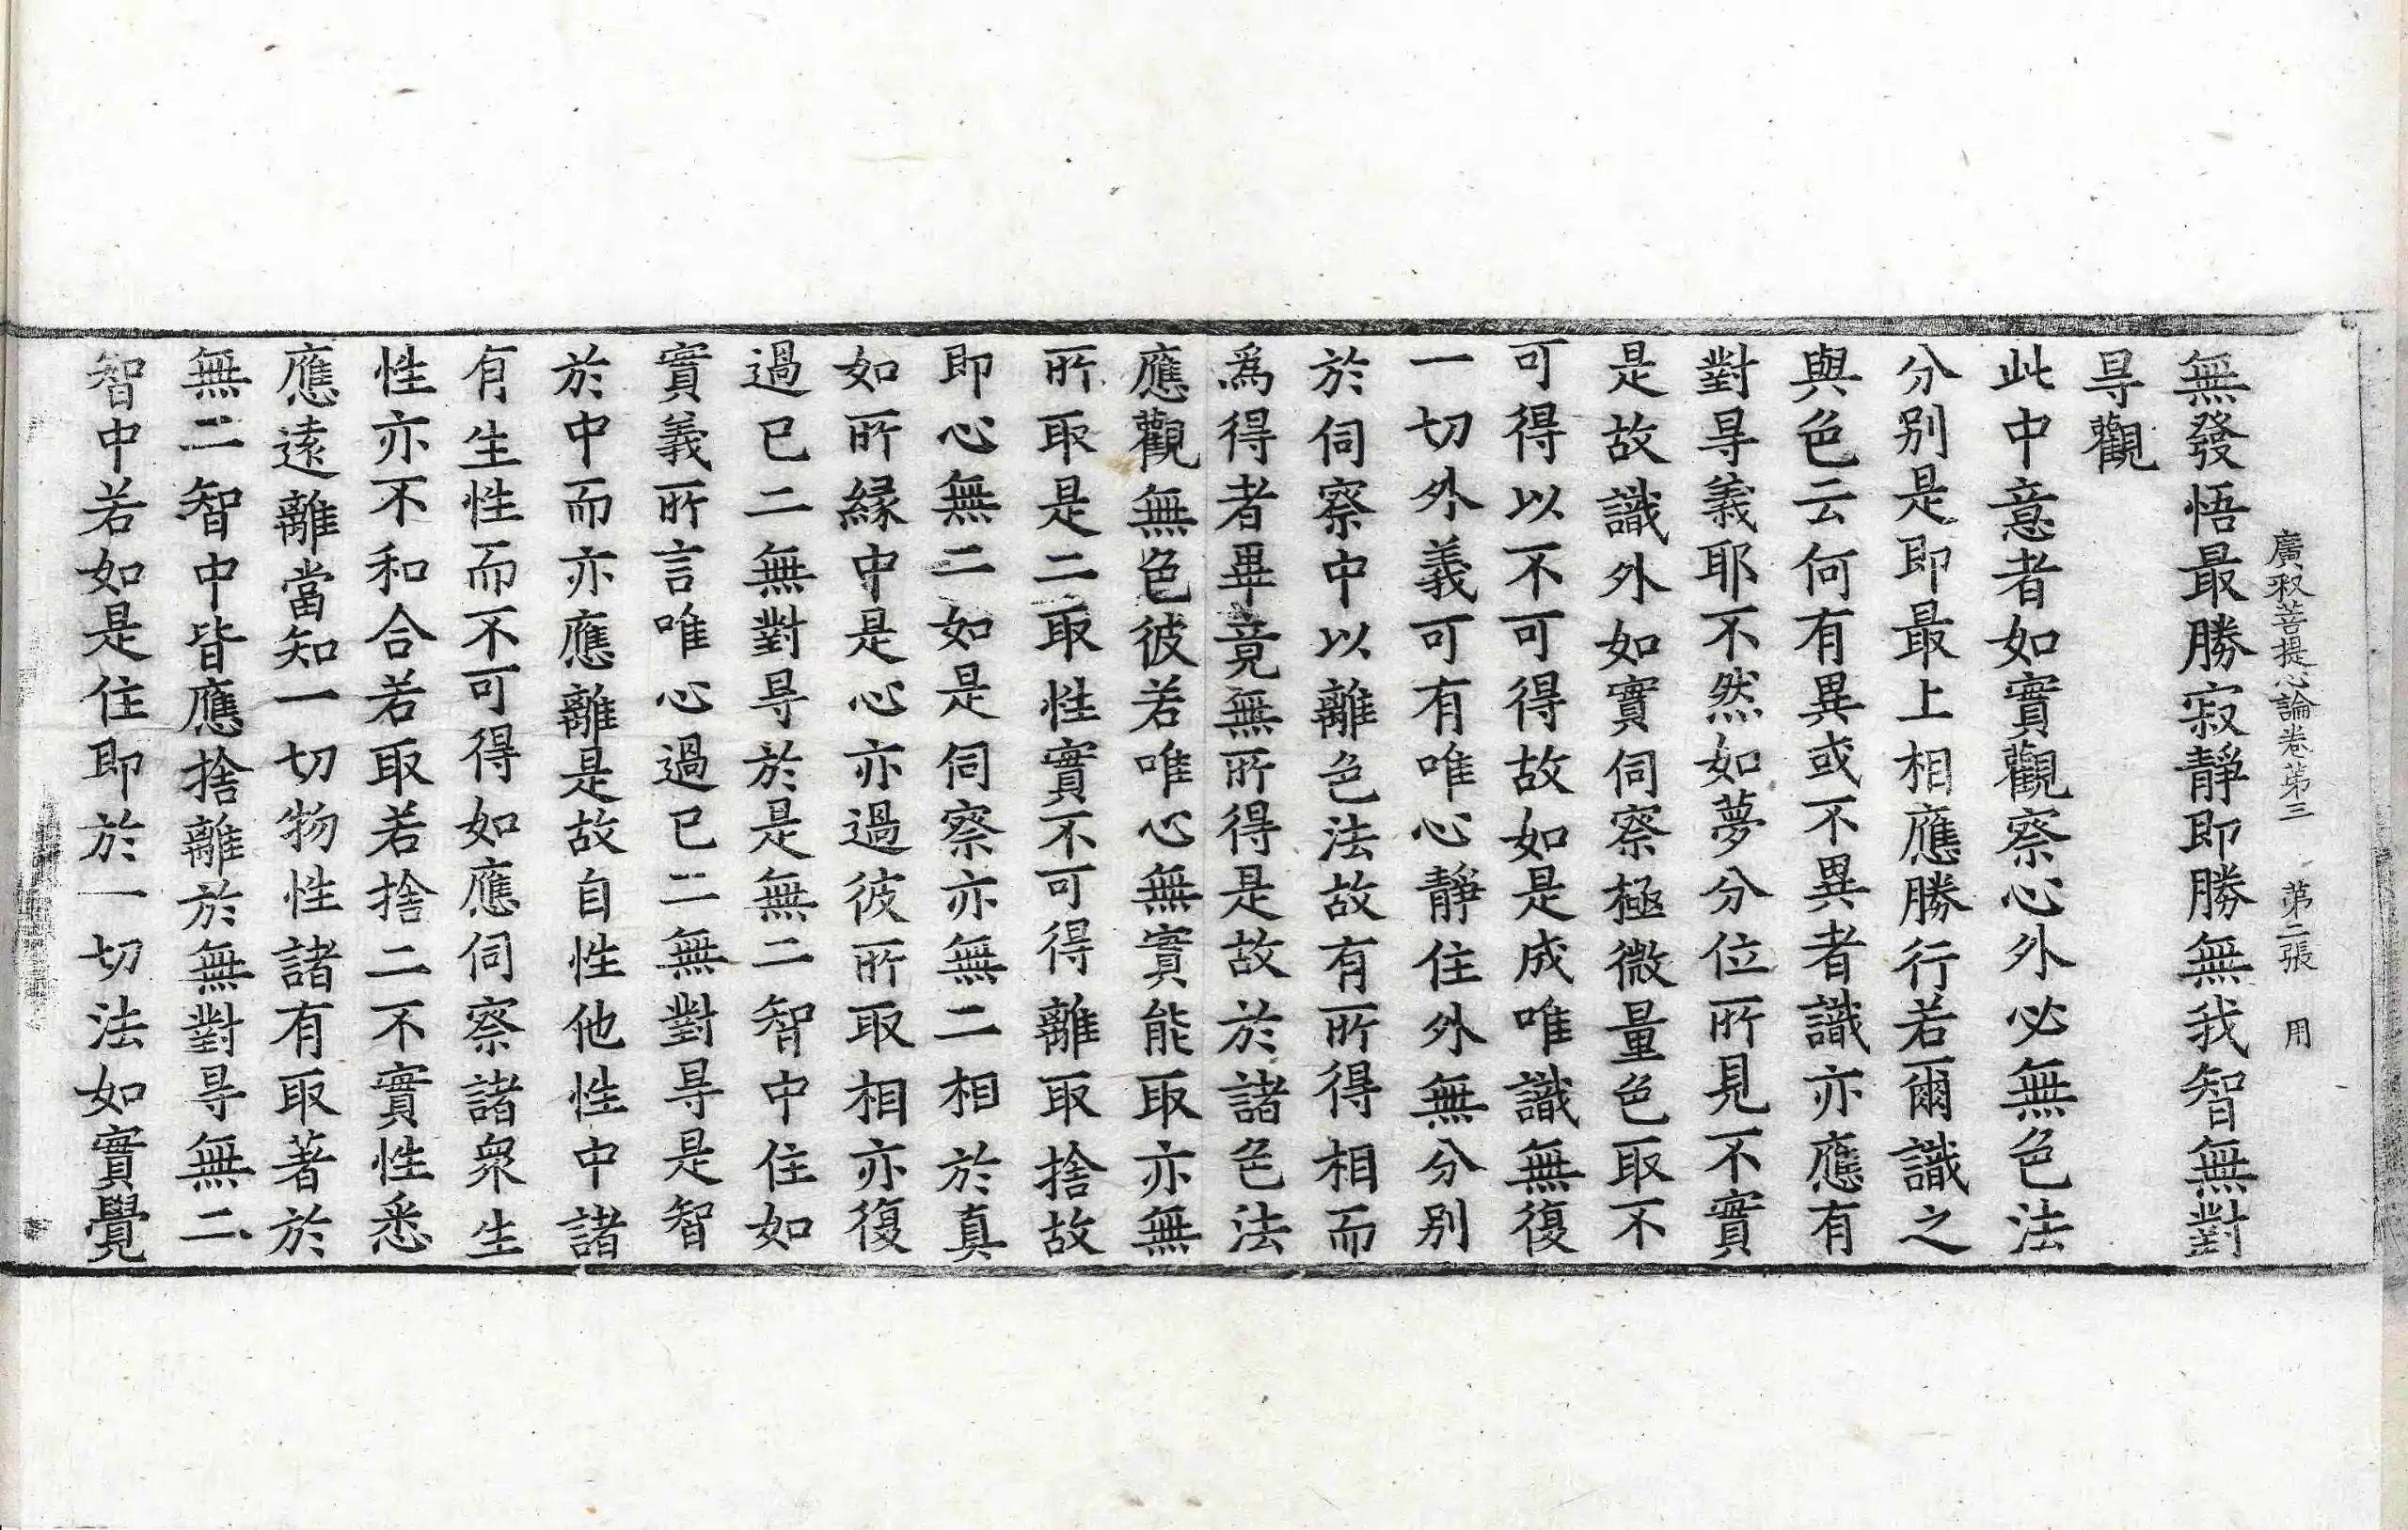 廣釈菩提心論卷第三 第二張 用
無發悟最勝寂靜即勝無我智無對
㝵觀
此中意者如實觀察心外必無色法
分別是即最上相應勝行若爾識之
與色云何有異或不異者識亦應有
對㝵義耶不然如夢分位所見不實
是故識外如實伺察極微量色取不
可得以不可得故如是成唯識無復
一切外義可有唯心靜住外無分別
於伺察中以離色法故有所得相而
為得者畢竟無所得是故於諸色法
應觀無色彼若唯心無實能取亦無
所取是二取性實不可得離取捨故
即心無二如是伺察亦無二相於真
如所緣中是心亦過彼所取相亦復
過已二無對㝵於是無二智中住如
實義所言唯心過已二無對㝵是智
於中而亦應離是故自性他性中諸
有生性而不可得如應伺察諸衆生
性亦不和合若取若捨二不實性悉
應遠離當知一切物性諸有取著於
無二智中皆應捨離於無對㝵無二
智中若如是住即於一切法如實覺